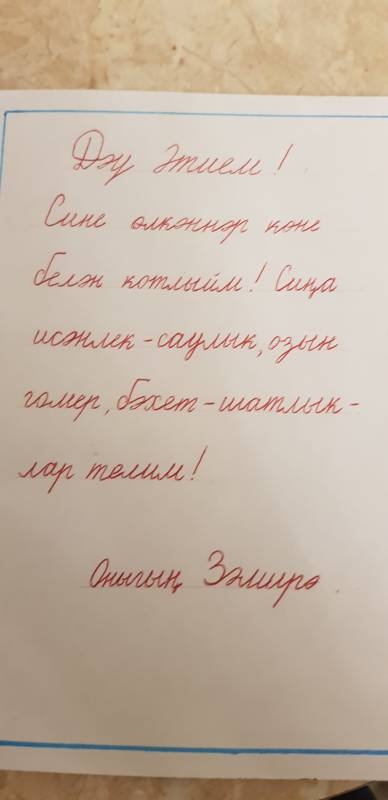 Дәү Әтием!
Сине өлкәннәр көне
белән котлыйм! Сиңа
исәнлек-саулык, озын
гомер, бәхет-шатлык-
лар телим!
Оныгың Зәмирә.